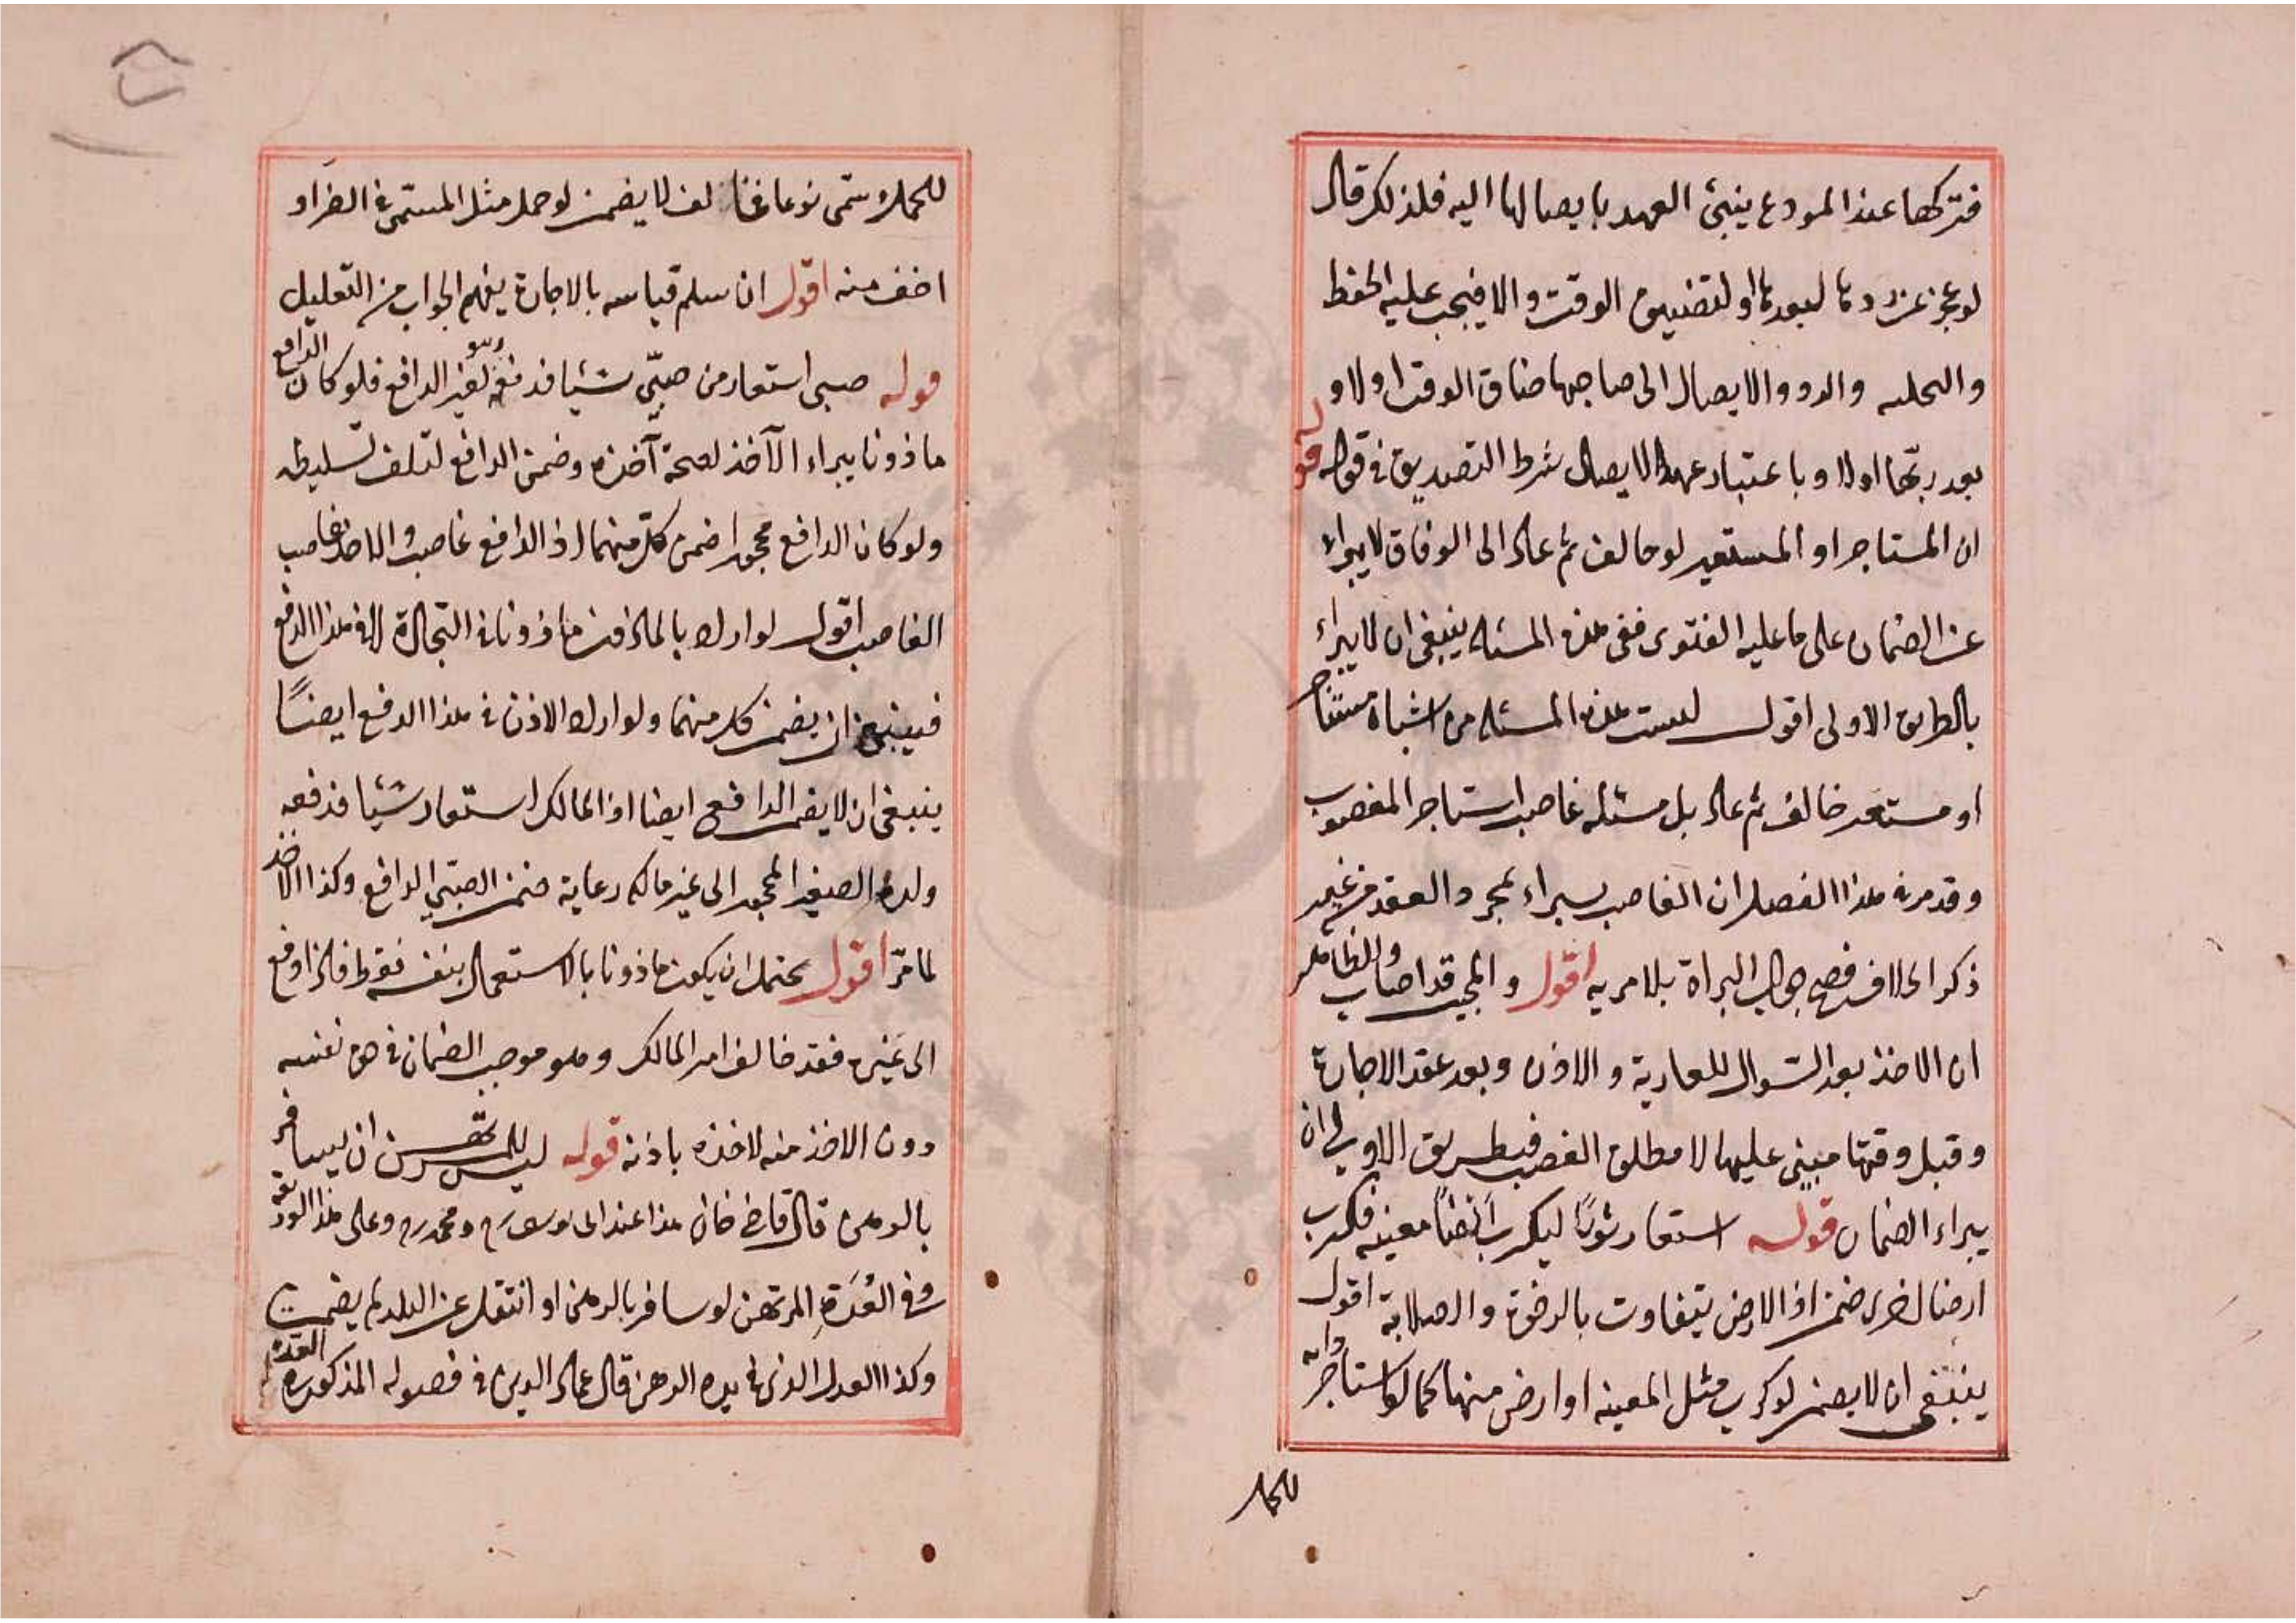 فتركها عند المودع ينبئ العهد بايصالها اليه فلذلك قال
لو عجز عن ردها لبعدها او لتضييق الوقت والا فيجب عليه الحفظ
والتخلية والرد والايصال الى صاحبها ضاق الوقت اولا و
بعد ربّها اولا وباعتبار عهد الايصال شرط التصديق في قوله قوله
ان المستاجر او المستعير لو خالف ثم عاد الى الوفاق لا يبراء
عن الضمان على ما عليه الفتوى ففي هذه المسئلة ينبغي ان لا يبراء
بالطريق الاولى اقول ليست هذه المسئلة من اشباه مستاجر
او مستعير خالف ثم عاد بل مسئلة غاصب استاجر المغصوب
وقد مر في هذا الفصل ان الغاصب يبراء بمجرد العقد من غير
ذكر الخلاف فصح جواب البراة بلا مرية اقول والمجيب قد اصاب والظاهر
ان الاخذ بعد السوال للعارية والاذن وبعد عقد الاجارة
وقبل وقتها مبني عليها لا مطلق الغصب فبطريق الاولى ان
يبراء الضمان قوله استعار ثورًا ليكرب ارضًا معينه فكرب
ارضا اخرى ضمن اذ الارض يتفاوت بالرخوة والصلابة اقول
ينبغي ان لا يضمن لو كرب مثل المعينه او ارض منها كما لو استاجر دابه
للحمل
للحمل وسمى نوعا فخالف لا يضمن لو حمل مثل المسمى في الضرر او
اخف منه اقول ان سلم قياسه بالاجارة يفهم الجواب من التعليل
قوله صبى استعار من صبّي شيئا فدفعه وهو لغير الدافع فلو كان الدافع
ماذونا يبراء الآخذ لصحة آخذه وضمن الدافع لتلف تسليطه
ولو كان الدافع محجورا ضمن كل منهما اذ الدافع غاصب والاخذ غاصب
الغاصب اقول لو اراد بالماذون ماذونا في التجارة لا في هذا الدفع
فينبغي ان يضمن كل منهما ولو اراد الاذن في هذا الدفع ايضًا
ينبغي ان لا يضمن الدافع ايضا اذ المالك استعار شيئا فدفعه
ولده الصغير المحجور الى غير مالكه رعاية ضمن الصبّي الدافع وكذا الاخذ
لما مرّ اقول يحتمل ان يكون ماذونا بالاستعمال بنفسه فقط فاذا دفع
الى غيره فقد خالف امر المالك وهو موجب الضمان في حق نفسه
دون الاخذ منه لاخذه باذنه قوله ليس للمرتهن ان يسافر
بالرهن قال قاضى خان هذا عند ابى يوسف رح ومحمد رح وعلى هذا الوديعة
وفي العُدَّةِ المرتهن لو سافر بالرهن او انتقل عن البلد لم يضمن
وكذا العدل الذى في يده الرهن قال عماد الدين في فصوله المذكورة العدة